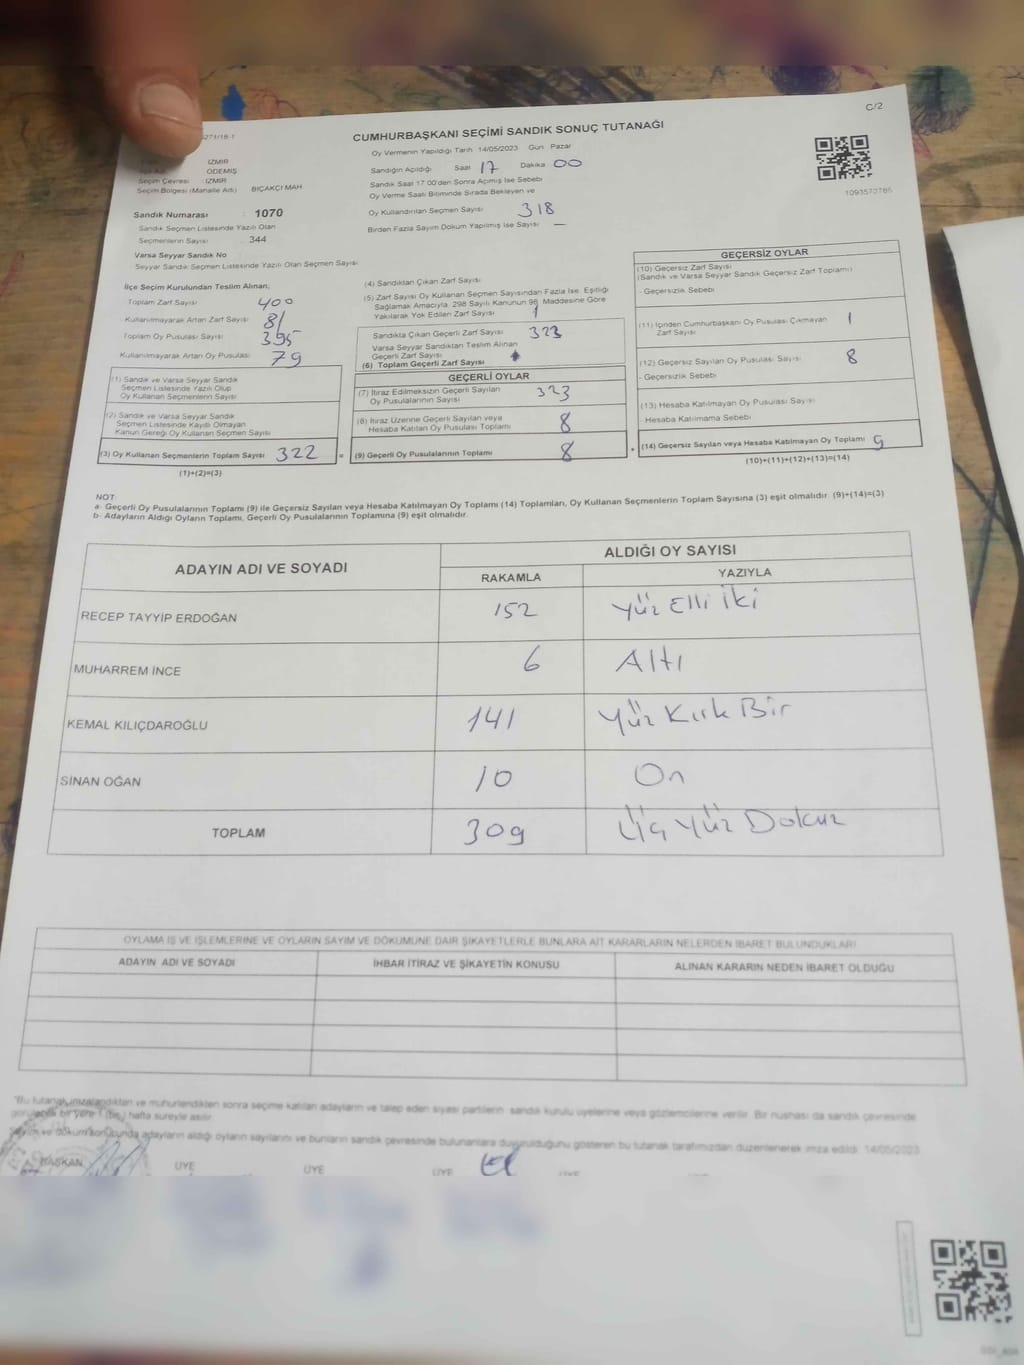 C/2
5271/18-1
CUMHURBAŞKANI SEÇİMİ SANDIK SONUÇ TUTANAĞI
İZMİR
ÖDEMİŞ
Seçim Çevresi : İZMİR
Seçim Bölgesi (Mahalle Adı) BIÇAKÇI MAH.
Sandık Numarası : 1070
Sandık Seçmen Listesinde Yazılı Olan
Seçmenlerin Sayısı : 344
Varsa Seyyar Sandık No
Seyyar Sandık Seçmen Listesinde Yazılı Olan Seçmen Sayısı
Oy Vermenin Yapıldığı Tarih 14/05/2023 Gün Pazar
Sandığın Açıldığı Saat 17 Dakika 00
Sandık Saat 17:00'den Sonra Açılmış İse Sebebi
Oy Verme Saati Bitiminde Sırada Bekleyen ve
Oy Kullandırılan Seçmen Sayısı 318
Birden Fazla Sayım Döküm Yapılmış İse Sayısı —
1093570786
İlçe Seçim Kurulundan Teslim Alınan;
Toplam Zarf Sayısı 400
Kullanılmayarak Artan Zarf Sayısı 81
Toplam Oy Pusulası Sayısı 395
Kullanılmayarak Artan Oy Pusulası 79
(1) Sandık ve Varsa Seyyar Sandık
Seçmen Listesinde Yazılı Olup
Oy Kullanan Seçmenlerin Sayısı
(2) Sandık ve Varsa Seyyar Sandık
Seçmen Listesinde Kayıtlı Olmayan
Kanun Gereği Oy Kullanan Seçmen Sayısı
(3) Oy Kullanan Seçmenlerin Toplam Sayısı 322
(1)+(2)=(3)
(4) Sandıktan Çıkan Zarf Sayısı
(5) Zarf Sayısı Oy Kullanan Seçmen Sayısından Fazla İse, Eşitliği
Sağlamak Amacıyla, 298 Sayılı Kanunun 98. Maddesine Göre
Yakılarak Yok Edilen Zarf Sayısı 1
Sandıkta Çıkan Geçerli Zarf Sayısı 323
Varsa Seyyar Sandıktan Teslim Alınan
Geçerli Zarf Sayısı
(6) Toplam Geçerli Zarf Sayısı
GEÇERLİ OYLAR
(7) İtiraz Edilmeksizin Geçerli Sayılan
Oy Pusulalarının Sayısı 323
(8) İtiraz Üzerine Geçerli Sayılan veya
Hesaba Katılan Oy Pusulası Toplamı 8
(9) Geçerli Oy Pusulalarının Toplamı 8
GEÇERSİZ OYLAR
(10) Geçersiz Zarf Sayısı
(Sandık ve Varsa Seyyar Sandık Geçersiz Zarf Toplamı)
- Geçersizlik Sebebi
(11) İçinden Cumhurbaşkanı Oy Pusulası Çıkmayan
Zarf Sayısı 1
(12) Geçersiz Sayılan Oy Pusulası Sayısı 8
- Geçersizlik Sebebi
(13) Hesaba Katılmayan Oy Pusulası Sayısı
- Hesaba Katılmama Sebebi
(14) Geçersiz Sayılan veya Hesaba Katılmayan Oy Toplamı 9
(10)+(11)+(12)+(13)=(14)
NOT:
a- Geçerli Oy Pusulalarının Toplamı (9) ile Geçersiz Sayılan veya Hesaba Katılmayan Oy Toplamı (14) Toplamları, Oy Kullanan Seçmenlerin Toplam Sayısına (3) eşit olmalıdır. (9)+(14)=(3)
b- Adayların Aldığı Oyların Toplamı, Geçerli Oy Pusulalarının Toplamına (9) eşit olmalıdır.
ADAYIN ADI VE SOYADI ALDIĞI OY SAYISI
RAKAMLA YAZIYLA
RECEP TAYYİP ERDOĞAN 152 Yüz Elli İki
MUHARREM İNCE 6 Altı
KEMAL KILIÇDAROĞLU 141 Yüz Kırk Bir
SİNAN OĞAN 10 On
TOPLAM 309 Üç Yüz Dokuz
OYLAMA İŞ VE İŞLEMLERİNE VE OYLARIN SAYIM VE DÖKÜMÜNE DAİR ŞİKAYETLERLE BUNLARA AİT KARARLARIN NELERDEN İBARET BULUNDUKLARI
ADAYIN ADI VE SOYADI İHBAR İTİRAZ VE ŞİKAYETİN KONUSU ALINAN KARARIN NEDEN İBARET OLDUĞU
"Bu tutanak imzalandıktan ve mühürlendikten sonra seçime katılan adayların ve talep eden siyasi partilerin sandık kurulu üyelerine veya gözlemcilerine verilir. Bir nüshası da sandık çevresinde
görülebilir bir yere 1 (bir) hafta süreyle asılır.
Sayım ve döküm sonucunda adayların aldığı oyların sayılarını ve bunların sandık çevresinde bulunanlara duyurulduğunu gösteren bu tutanak tarafımızdan düzenlenerek imza edildi. 14/05/2023
BAŞKAN ÜYE ÜYE ÜYE ÜYE